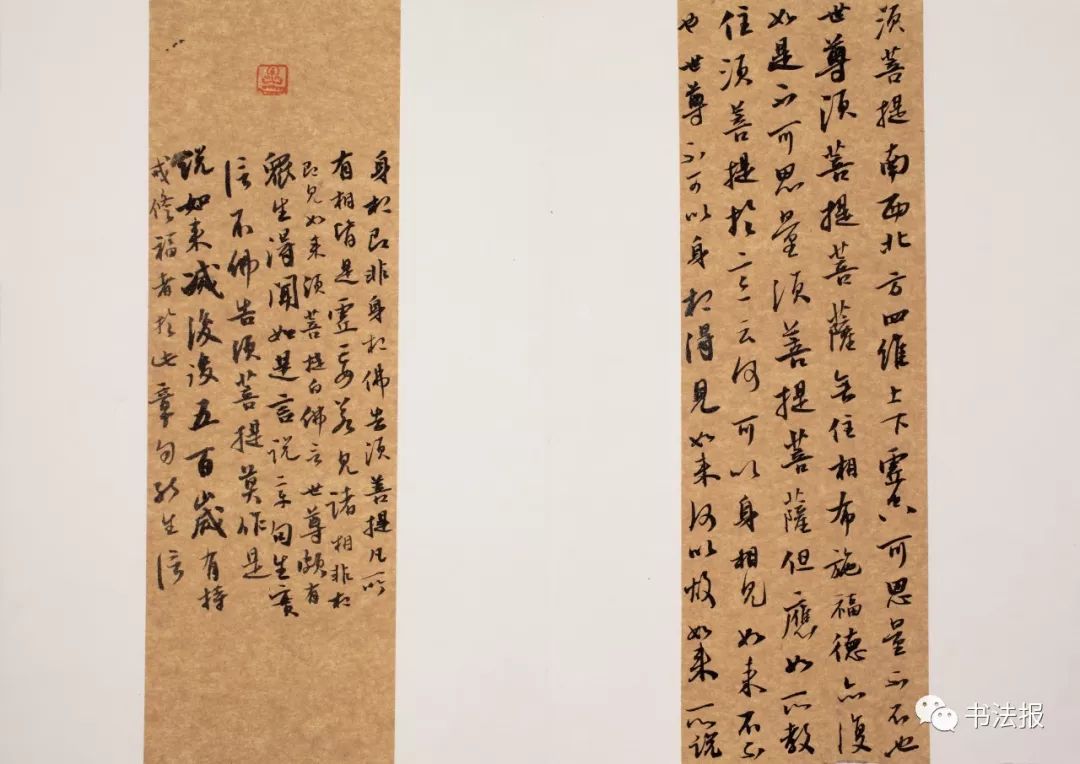 須菩提南西北方四維上下虛空可思量不不也
世尊須菩提菩薩無住相布施福德亦復
如是不可思量須菩提菩薩但應如所教
住須菩提於意云何可以身相見如來不不
也世尊不可以身相得見如來何以故如來所說
身相即非身相佛告須菩提凡所
有相皆是虛妄若見諸相非相
即見如來須菩提白佛言世尊頗有
眾生得聞如是言說章句生實
信不佛告須菩提莫作是
說如來滅後後五百歲有持
戒修福者於此章句能生信
书法报